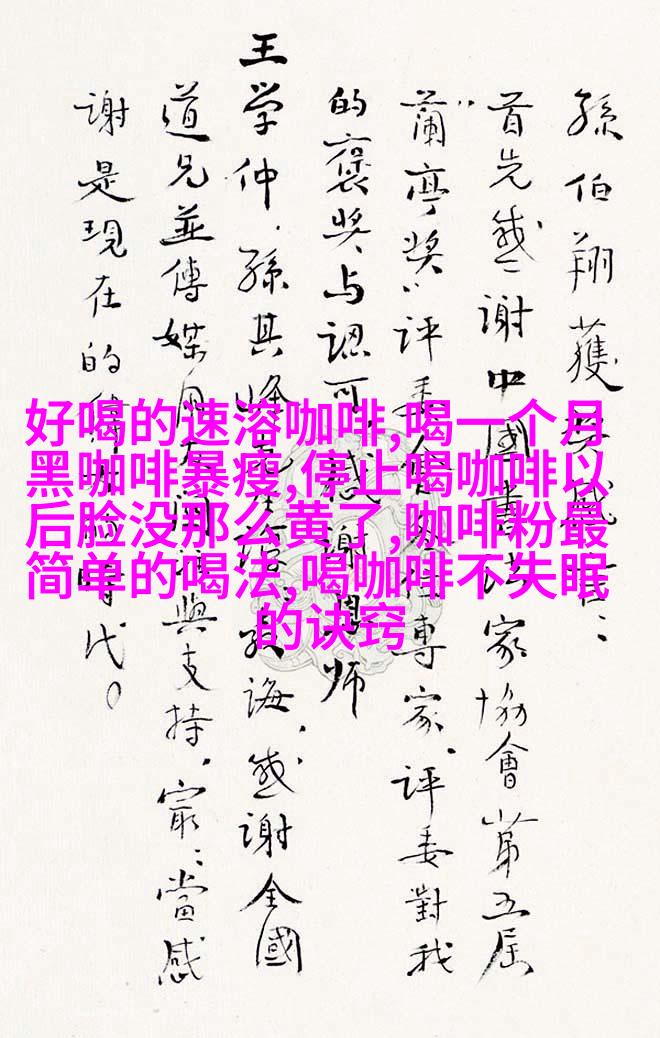 孫伯翔獲獎感言：
首先感謝中國書法家協會第五屆
“蘭亭獎”評委會專家、評委對我
的褒獎与認可，感謝恩师
王学仲、孫其峰誨，感谢全國
道兄並傳媒朋友與支持，最當感
謝是現在的時代。
好喝的速溶咖啡,喝一个月
黑咖啡暴瘦,停止喝咖啡以
后脸没那么黄了,咖啡粉最
简单的喝法,喝咖啡不失眠
的诀窍